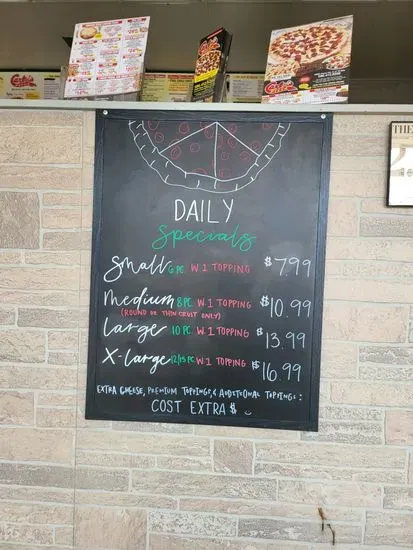 DAILY
Specials
Small 6 PC W. 1 TOPPING $7.99
Medium 8 PC W. 1 TOPPING $10.99
(ROUND OR THIN CRUST ONLY)
Large 10 PC W. 1 TOPPING $13.99
X-Large 12/15 PC W. 1 TOPPING $16.99
EXTRA CHEESE, PREMIUM TOPPINGS, & ADDITIONAL TOPPINGS:
COST EXTRA $
THE